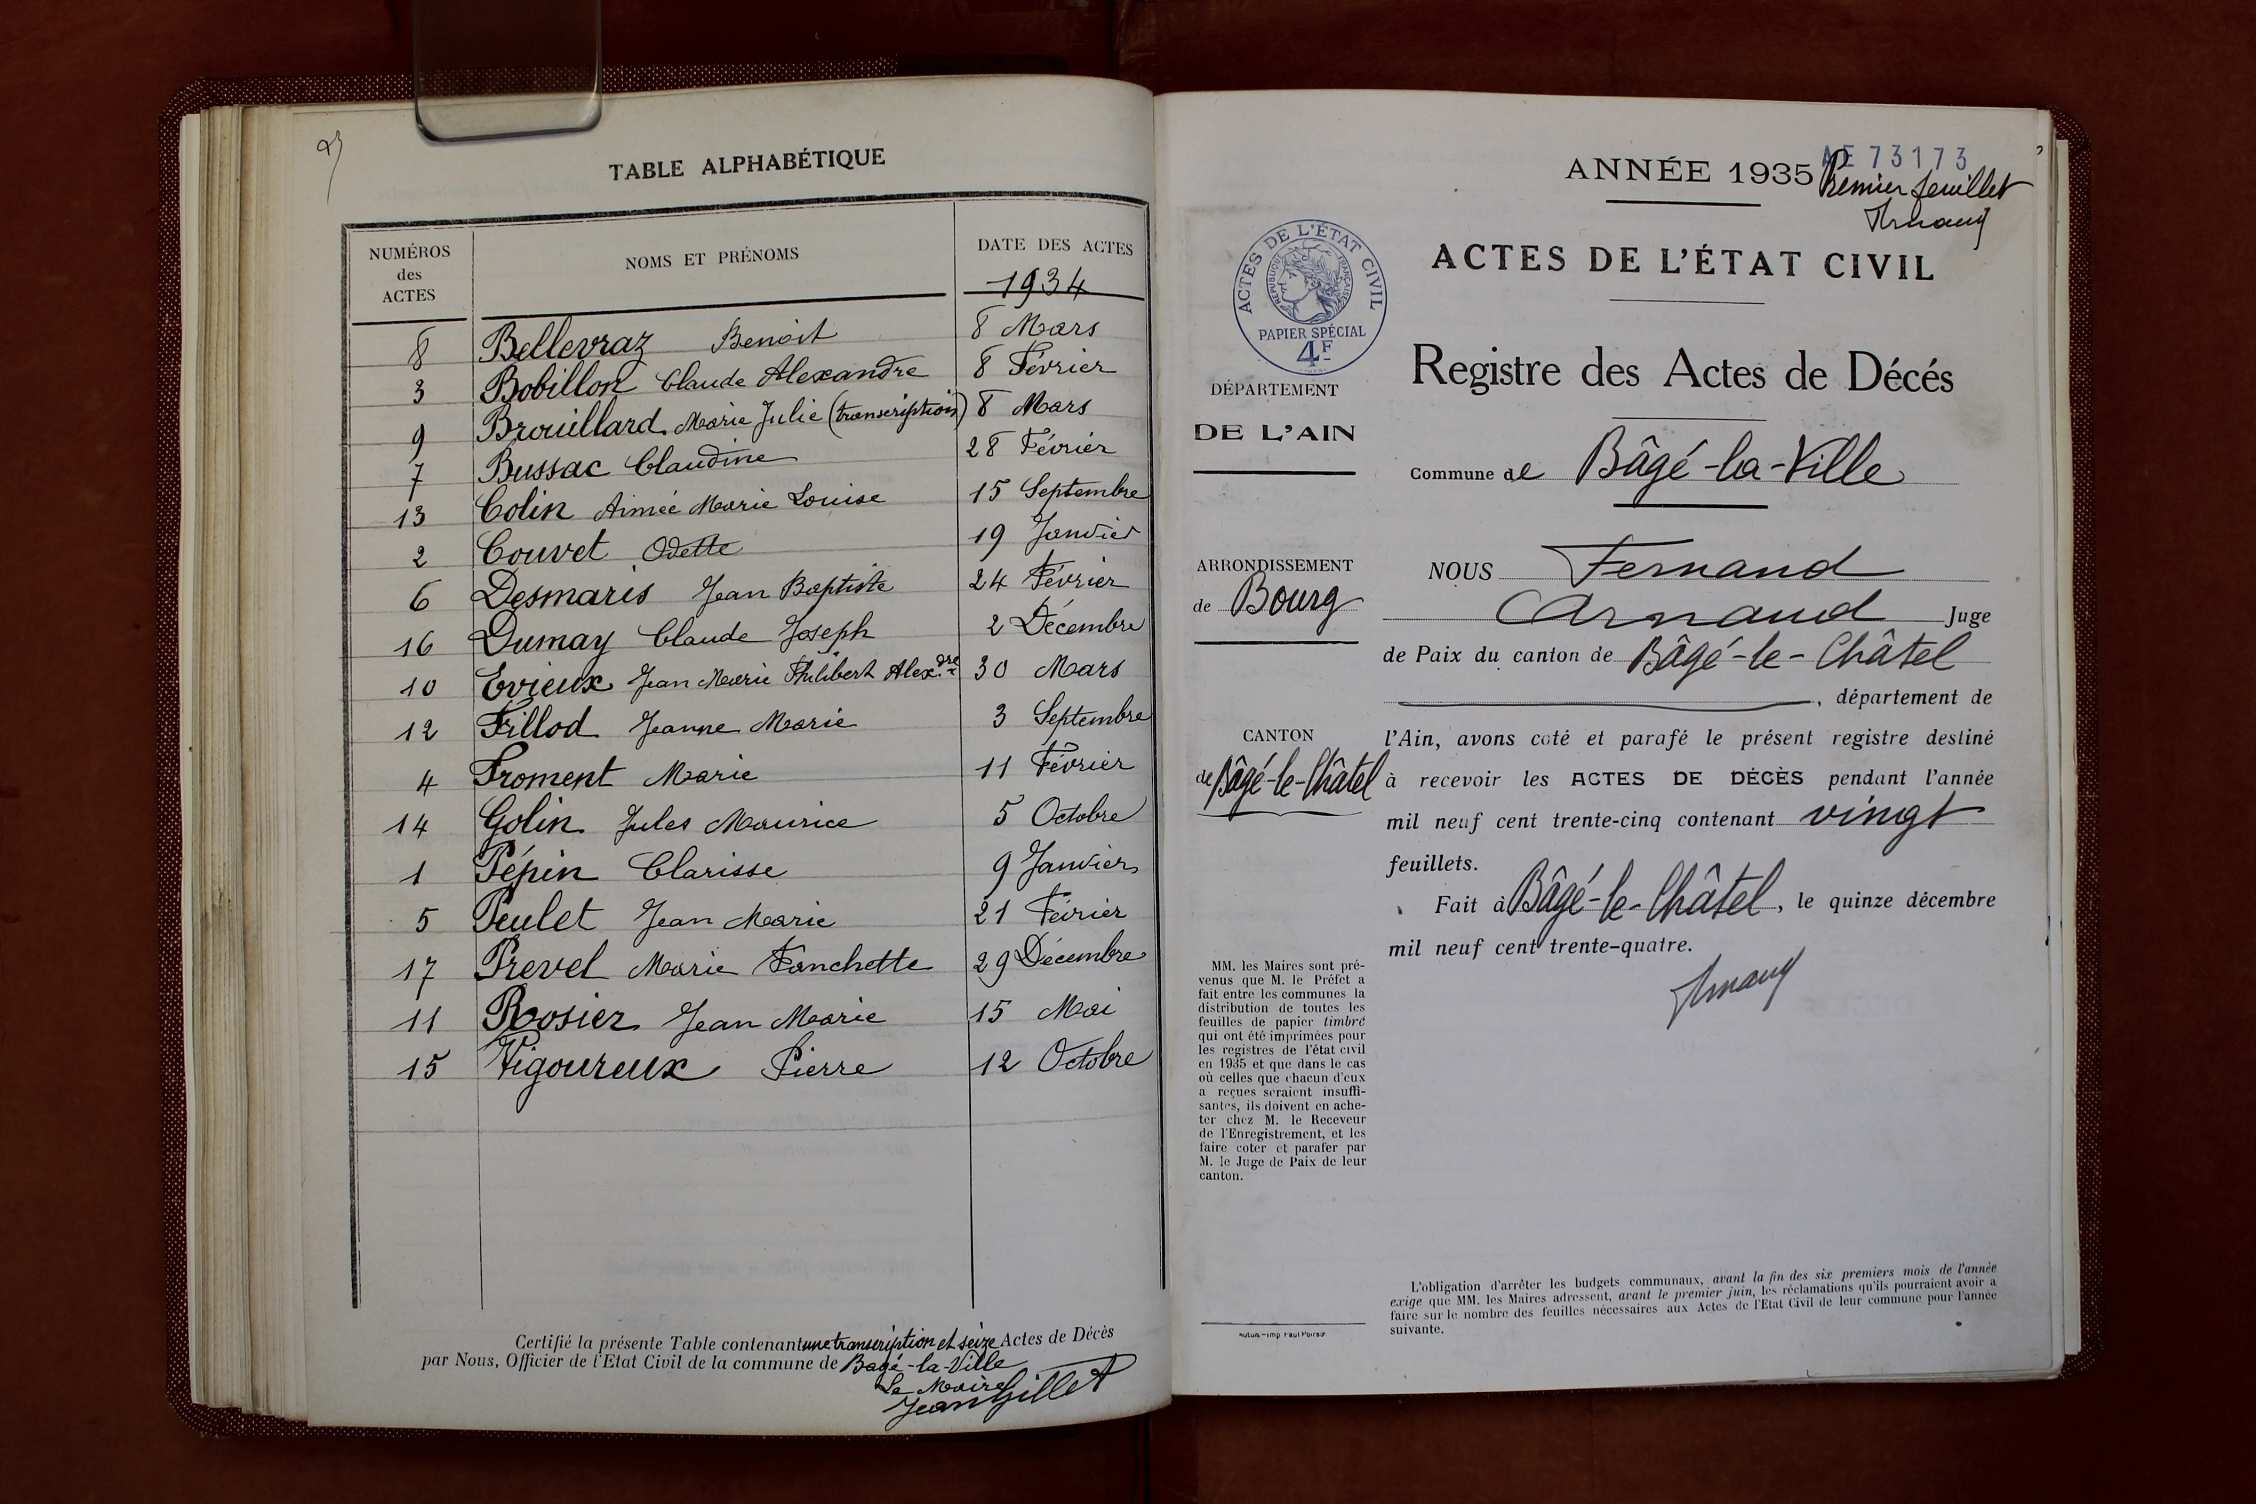 TABLE ALPHABÉTIQUE
NUMÉROS
des
ACTES
NOMS ET PRÉNOMS
DATE DES ACTES
1934
8 Bellevraz Benoit 8 Mars
3 Bobillon Claude Alexandre 8 Février
9 Brouillard Marie Julie (transcription) 8 Mars
7 Bussac Claudine 28 Février
13 Colin Aimée Marie Louise 15 Septembre
2 Couvet Odette 19 Janvier
6 Desmaris Jean Baptiste 24 Février
16 Dumay Claude Joseph 2 Décembre
10 Evieux Jean Marie Philibert Alex.dre 30 Mars
12 Fillod Jeanne Marie 3 Septembre
4 Froment Marie 11 Février
14 Golin Jules Maurice 5 Octobre
1 Pépin Clarisse 9 Janvier
5 Peulet Jean Marie 21 Février
17 Prevel Marie Fanchette 29 Décembre
11 Rosier Jean Marie 15 Mai
15 Vigoureux Pierre 12 Octobre
Certifié la présente Table contenant une transcription et seize Actes de Décès
par Nous, Officier de l'Etat Civil de la commune de Bagé-la-Ville
Le Maire
Jean Gillet
ANNÉE 1935
AE 73173
Premier feuillet
Arnaud
ACTES DE L'ÉTAT CIVIL
RÉPUBLIQUE FRANÇAISE
PAPIER SPÉCIAL
4F
DÉPARTEMENT
DE L'AIN
ARRONDISSEMENT
de Bourg
CANTON
de Bâgé-le-Châtel
MM. les Maires sont pré-
venus que M. le Préfet a
fait entre les communes la
distribution de toutes les
feuilles de papier timbré
qui ont été imprimées pour
les registres de l'état civil
en 1935 et que dans le cas
où celles que chacun d'eux
a reçues seraient insuffi-
santes, ils doivent en ache-
ter chez M. le Receveur
de l'Enregistrement, et les
faire coter et parafer par
M. le Juge de Paix de leur
canton.
ACTES DE L'ÉTAT CIVIL
Registre des Actes de Décés
Commune de Bâgé-la-Ville
NOUS Fernand
Arnaud Juge
de Paix du canton de Bâgé-le-Châtel
, département de
l'Ain, avons coté et parafé le présent registre destiné
à recevoir les ACTES DE DÉCÈS pendant l'année
mil neuf cent trente-cinq contenant vingt
feuillets.
Fait à Bâgé-le-Châtel, le quinze décembre
mil neuf cent trente-quatre.
Arnaud
L'obligation d'arrêter les budgets communaux, avant la fin des six premiers mois de l'année
exige que MM. les Maires adressent, avant le premier juin, les réclamations qu'ils pourraient avoir a
faire sur le nombre des feuilles nécessaires aux Actes de l'Etat Civil de leur commune pour l'année
suivante.